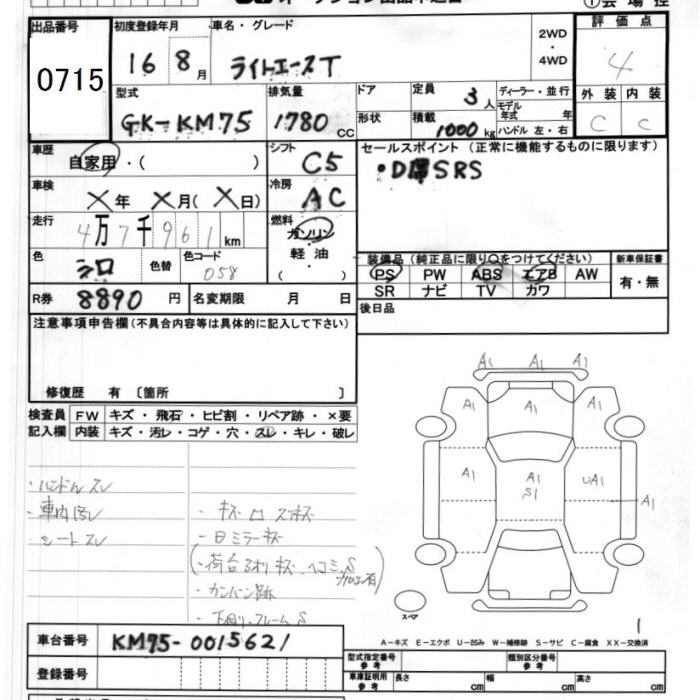 出品番号 初度登録年月 車名・グレード 2WD・4WD 評価点
0715 16 8月 ライトエースT 4
型式 排気量 ドア 定員 3人 ディーラー・並行 外装 内装
GK-KM75 1780cc 形状 積載 1000kg モデル年式 年 ハンドル 左・右 C C
車歴 自家用・( ) シフト C5 セールスポイント (正常に機能するものに限ります)
車検 X年 X月(X日) 冷房 AC ・D席SRS
走行 4万7千961km 燃料 ガソリン
軽油
( )
色 シロ 色替 色コード 058
装備品(純正品に限り○をつけてください) 新車保証書
PS PW ABS エアB AW 有・無
SR ナビ TV カワ
R券 8890円 名変期限 月 日 後日品
注意事項申告欄(不具合内容等は具体的に記入して下さい)
修復歴 有 〔箇所 〕
検査員記入欄 FW キズ・飛石・ヒビ割・リペア跡・×要
内装 キズ・汚レ・コゲ・穴・スレ・キレ・破レ
・ハンドルスレ
・車内汚レ
・シートスレ
・キズ
・ミラーキズ
(荷台 キズ ヘコミ S
・カンバン跡
・下回り フレーム S
A1 A1 A1
A1 A1 A1
A1 A1 S1 UA1 A1
スペア
1
A-キズ E-エクボ U-凹み W-補修跡 S-サビ C-腐食 XX-交換済
車台番号 KM75-0015621
登録番号
型式指定番号 参考 類別区分番号 参考
車庫証明用 参考 長さ cm 幅 cm 高さ cm